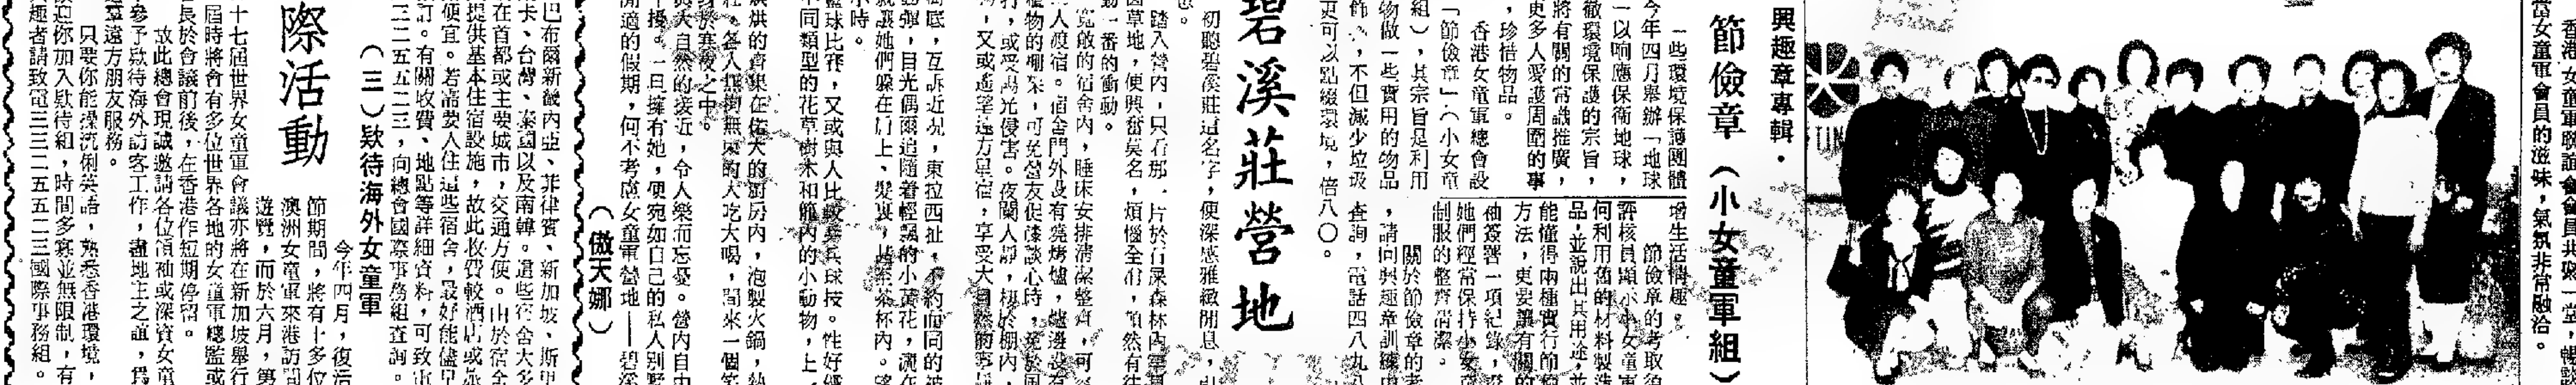 香港女童軍聯誼會會員共聚一堂
當女童軍會員的滋味，氣氛非常融洽。
興趣章專輯．
節儉章（小女童軍組）
一些環境保護團體
今年四月舉辦「地球
一以响應保衛地球，
徹環境保護的宗旨，
將有關的常識推廣，
更多人愛護周圍的事
，珍惜物品。
香港女童軍總會設
「節儉章」（小女童
組），其宗旨是利用
物做一些實用的物品
飾，不但減少垃圾
更可以點綴環境，倍
增生活情趣。
節儉章的考取須
評核員顯示小女童軍
何利用舊的材料製造
品，並說出其用途，並
能懂得兩種實行節儉
方法，更要讓有關的
袖簽署一項紀錄，證
她們經常保持小女童
制服的整齊清潔。
關於節儉章的考
，請向興趣章訓練
查詢，電話四八九八
八〇。
碧溪莊營地
初聽碧溪莊這名字，便深感雅緻閒息，
踏入營內，只看那一片於行屎森林內罕
面草地，便興奮莫名，煩惱全消，頓然有往
動一番的衝動。
寬敞的宿舍內，睡床安排清潔整齊，可
人渡宿。宿舍門外設有燒烤爐，爐邊設有
植物的棚架，可免營友促膝談心時，免於風
打，或受陽光侵害。夜闌人靜，棲於棚內，
，又或遙望遠方星宿，享受大自然的寧靜
樹底，互訴近況，東拉西扯，不約而同的被
彈，目光偶爾追隨着輕飄的小黃花，
就讓她們躲在肩上、髮裏，甚至茶杯內。
小時。
籃球比賽，又或與人比較羽球技。性好優
不同類型的花草樹木和籠內的小動物，上
烘烘的齊集在偌大的廚房內，泡製火鍋，熱
，各人無拘無束的大吃大喝，間來一個笑
身於寒夜之中。
與大自然的接近，令人樂而忘憂。營內自由
干擾。一旦擁有她，便宛如自己的私人別墅
閒適的假期，何不考慮女童軍營地——碧溪
（傲天娜）
巴布爾新畿內亞、菲律賓、新加坡、斯里
卡、台灣、泰國以及南韓。這些宿舍大多
在首都或主要城市，交通方便。由於宿舍
提供基本住宿設施，故此收費較酒店或旅
便宜。若需要入住這些宿舍，最好能儘早
訂。有關收費、地點等詳細資料，可致電
三三二五五二三，向總會國際事務組查詢。
（三）欵待海外女童軍
今年四月，復活
節期間，將有十多位
澳洲女童軍來港訪問
遊覽，而於六月，第
際活動
十七屆世界女童軍會議亦將在新加坡舉行
屆時將會有多位世界各地的女童軍總監或
長於會議前後，在香港作短期停留。
故此總會現誠邀請各位領袖或深資女童
參予欵待海外訪客工作，盡地主之誼，爲
遠方朋友服務。
只要你能操流俐英語，熟悉香港環境，
迎你加入欵待組，時間多寡並無限制，有
趣者請致電三三二五五二三國際事務組。